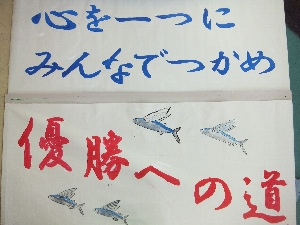 心を一つに
みんなでつかめ
優勝への道